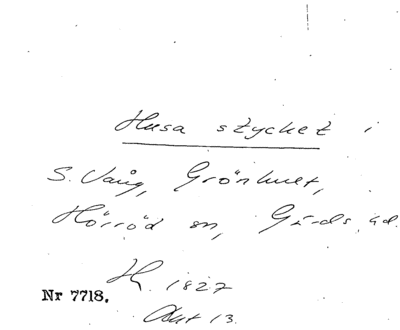 Husa stycket i
S. Vång, Grönhult,
Hörröd sn, Gärds hd.
H. 1827
Nr 7718.
Akt 13.